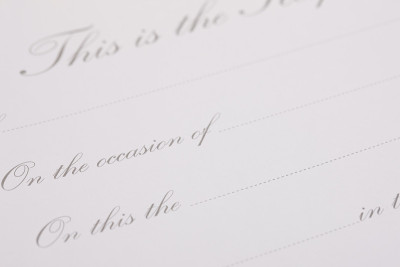 This is the
On the occasion of
On this the
in